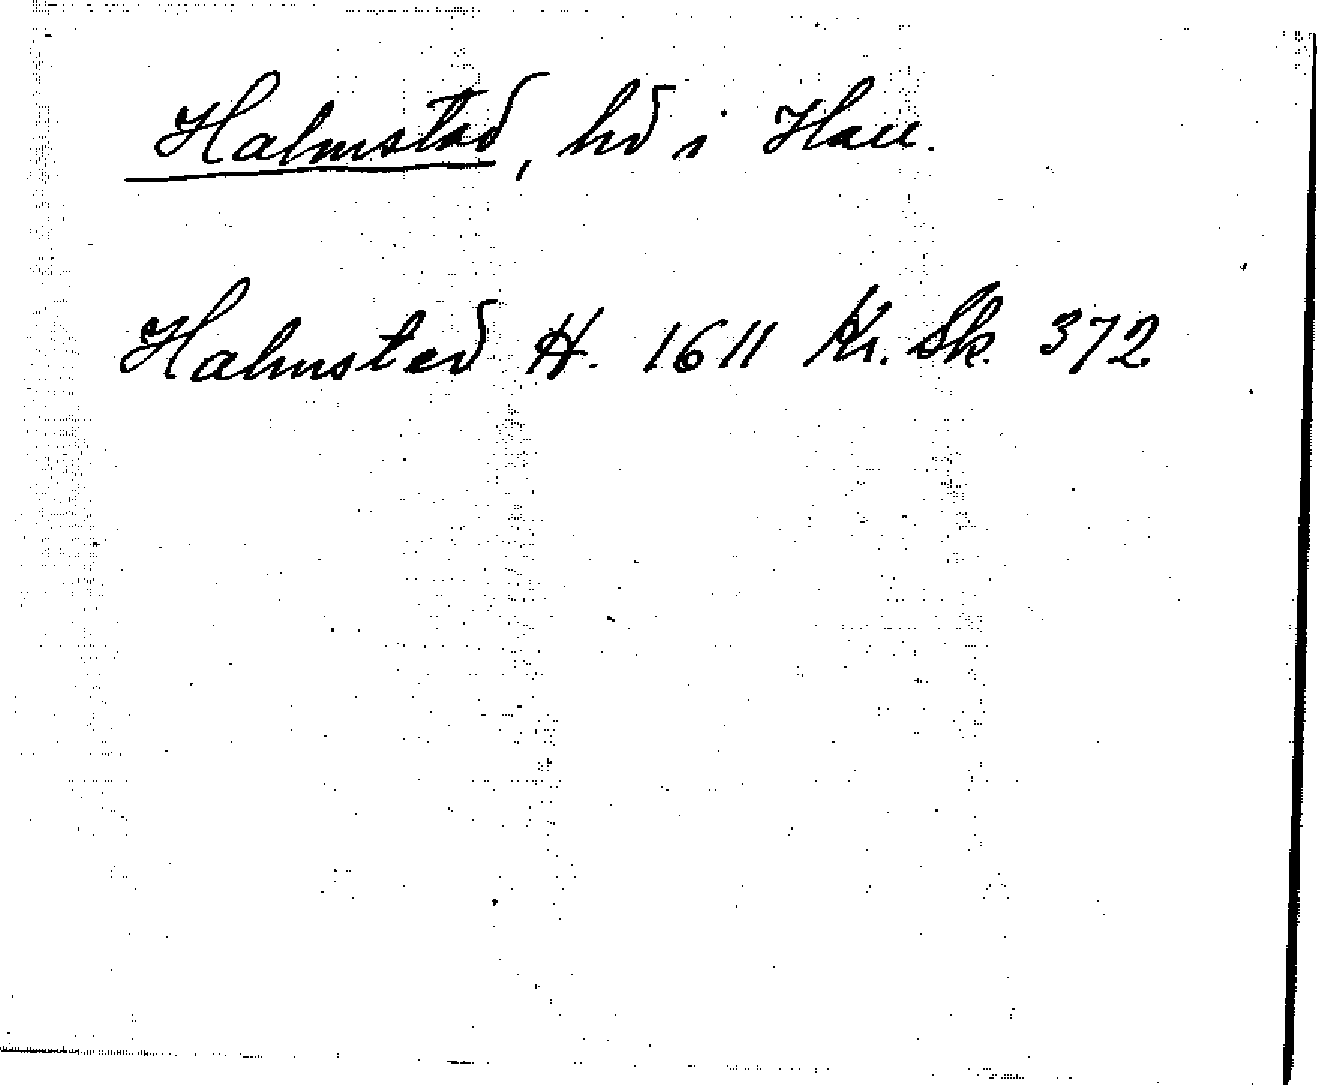 Halmstad, hd i Hall.
Halmsted H. 1611 Kr. Sk. 372